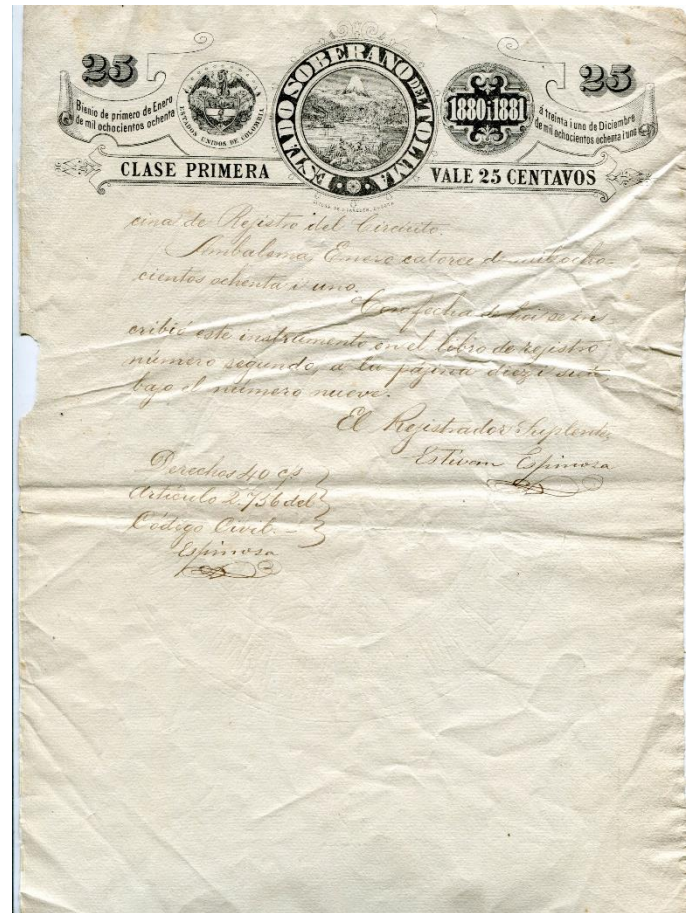 25
25
Bienio de primero de Enero
de mil ochocientos ochenta
ESTADOS UNIDOS DE COLOMBIA
ESTADO SOBERANO DEL TOLIMA
1880 i 1881
á treinta i uno de Diciembre
de mil ochocientos ochenta i uno
CLASE PRIMERA
VALE 25 CENTAVOS
cina de Rejistro del Circuito.
Ambalema, Enero catorce de mil ocho-
cientos ochenta i uno.
Con fecha de hoi se ins
cribió este instrumento en el libro de rejistro
número segundo, a la pájina diez i siete,
bajo el número nueve.
El Rejistrador Suplente,
Estívan Espinosa
Derechos 40 cs
Artículo 2.736 del
Código Civil.
Espinosa